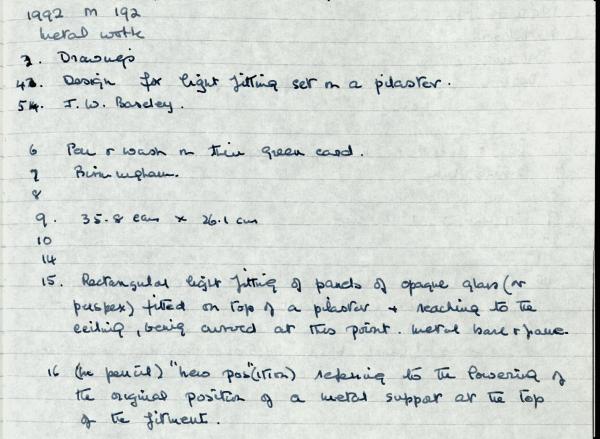 1992 M 192
Metal work
3. Drawings
43. Design for light fitting set on a pilaster.
54. J. W. Bardley.
6 Pen & wash on thin green card.
7 Birmingham.
8
9. 35.8 cms x 26.1 cms
10
14
15. Rectangular light fitting of panels of opaque glass (or
perspex) fitted on top of a pilaster & reaching to the
ceiling, being curved at this point. Metal base & frame.
16 (In pencil) "new pos"(ition) referring to the lowering of
the original position of a metal support at the top
of the fitment.